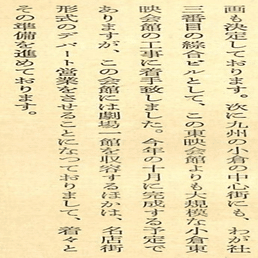 画も決定しております。次に九州の小倉の中心街にも、わが社
三番目の綜合ビルとして、この東映会館よりも大規模な小倉東
映会館の工事に着手致しました。今年の十月に完成する予定で
ありますが、この会館には劇場一館を収容するほかは、名店街
形式のデパート営業をさせることになつておりまして、着々と
その準備を進めております。